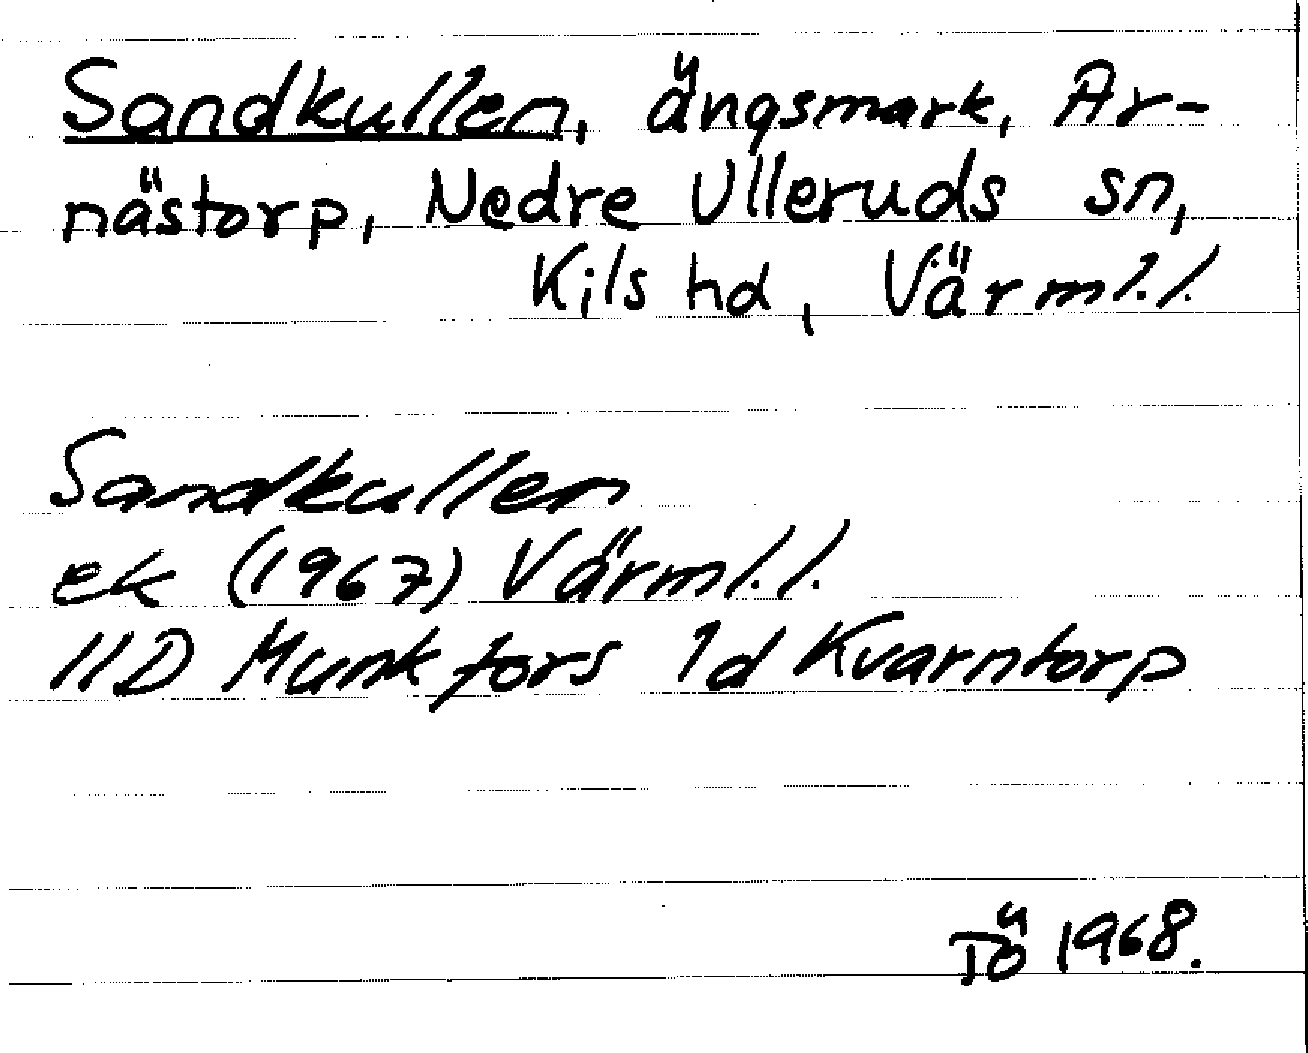 Sandkullen, ängsmark, Ar-
nästorp, Nedre Ulleruds sn,
Kils hd, Värml.l.
Sandkullen
ek (1967) Värml.l.
11D Munkfors 1d Kvarntorp
Tö 1968.